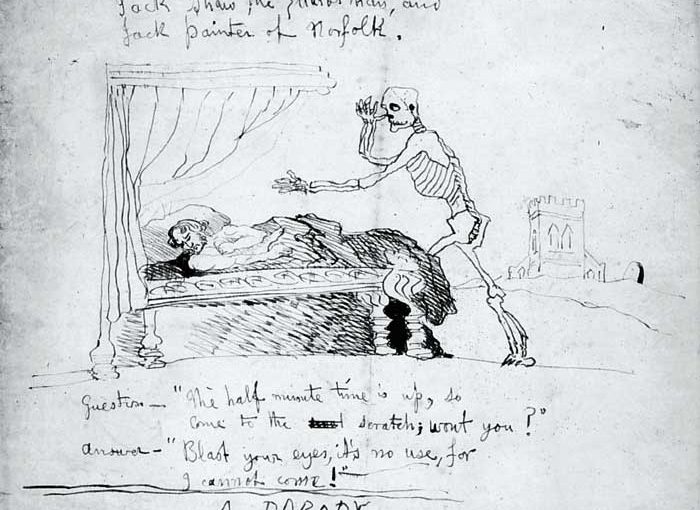 Jack Shaw the guardsman, and
Jack painter of Norfolk.
Question — "The half minute time is up, so
come to the scratch; wont you?"
Answer — "Blast your eyes, it's no use, for
I cannot come!"
A PARADE